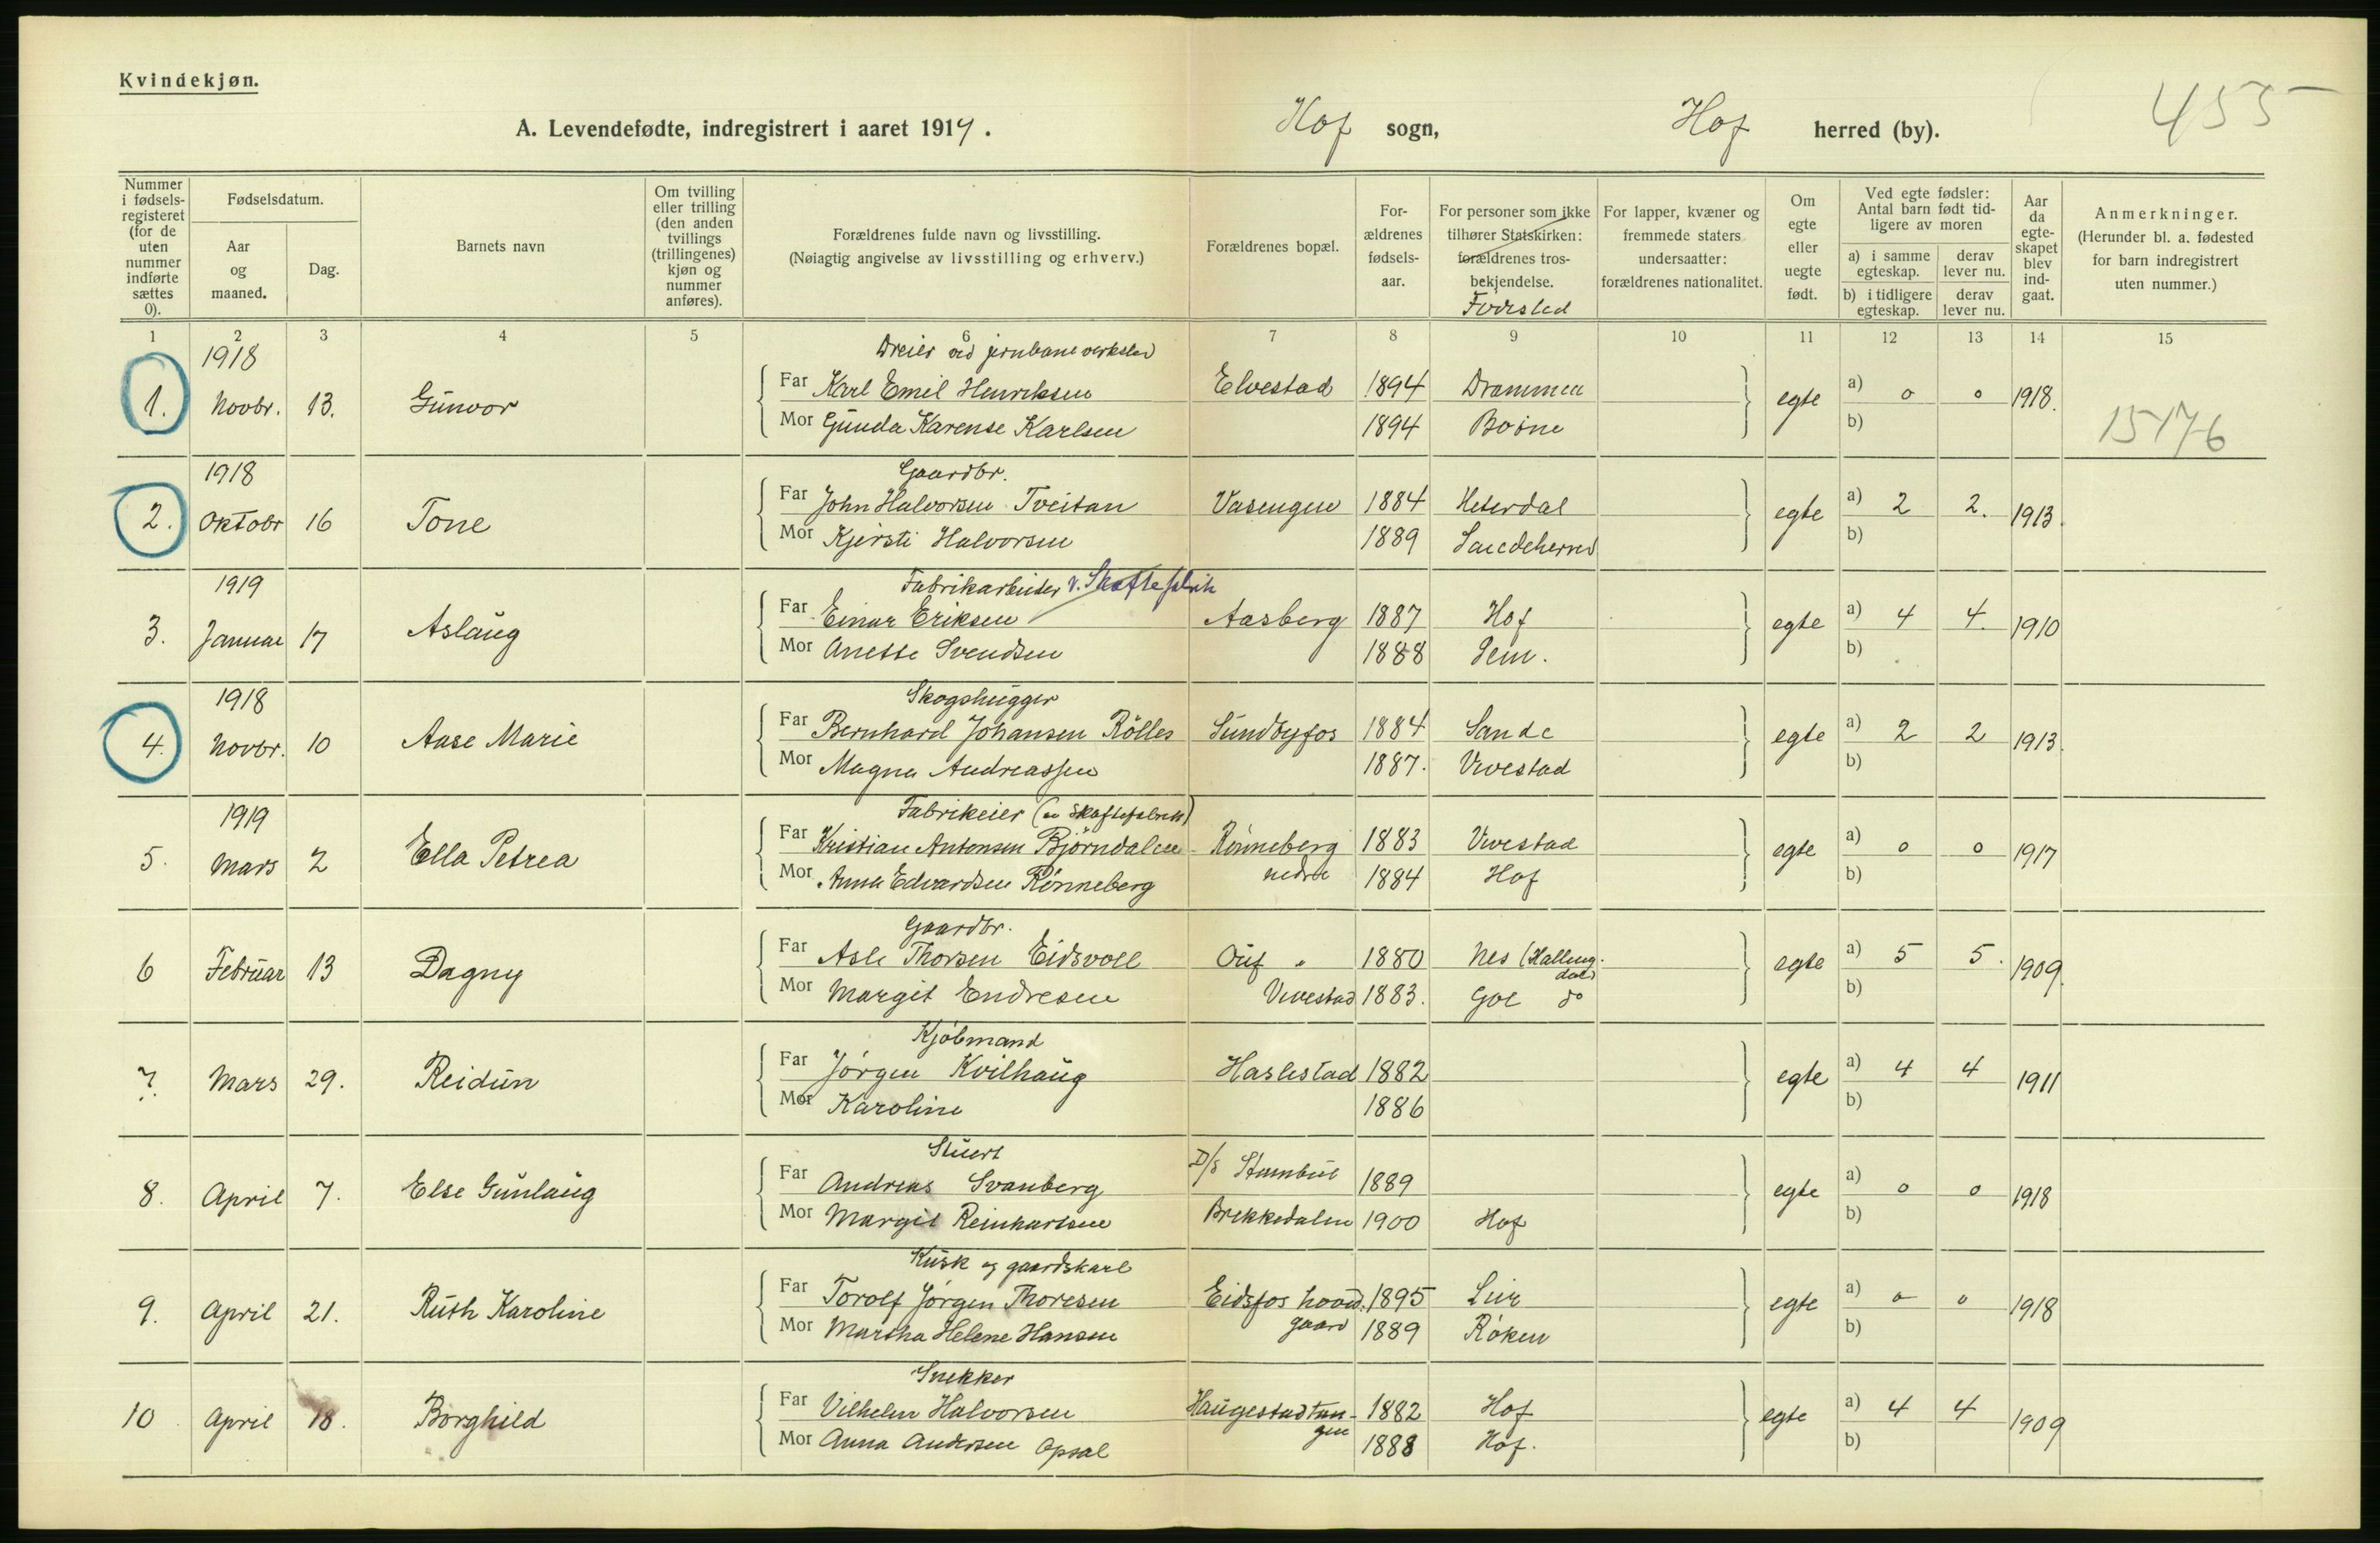 Kvindekjøn.
455
A. Levendefødte, indregistrert i aaret 1919. Hof sogn, Hof herred (by).
Nummer i fødselsregisteret (for de uten nummer indførte sættes 0).
Fødselsdatum.
Aar og maaned.
Dag.
Barnets navn
Om tvilling eller trilling (den anden tvillings (trillingenes) kjøn og nummer anføres).
Forældrenes fulde navn og livsstilling.
(Nøiagtig angivelse av livsstilling og erhverv.)
Forældrenes bopæl.
Forældrenes fødselsaar.
For personer som ikke tilhører Statskirken: forældrenes trosbekjendelse.
Fødested
For lapper, kvæner og fremmede staters undersaatter: forældrenes nationalitet.
Om egte eller uegte født.
Ved egte fødsler: Antal barn født tidligere av moren
a) i samme egteskap. derav lever nu.
b) i tidligere egteskap. derav lever nu.
Aar da egteskapet blev indgaat.
Anmerkninger.
(Herunder bl. a. fødested for barn indregistrert uten nummer.)
1 2 3 4 5 6 7 8 9 10 11 12 13 14 15
1918 Dreier ved jernbaneverksted
1. Novbr. 13. Gunvor Far Karl Emil Henriksen Elvestad 1894 Drammen egte a) 0 0 1918.
Mor Gunda Karense Karlsen 1894 Botne b)
15176
1918 Gaardbr.
2. Oktobr 16 Tone Far John Halvorsen Tveitan Vasengen 1884 Heterdal egte a) 2 2. 1913.
Mor Kjersti Halvorsen 1889 Sandeherred b)
1919 Fabrikarbeider v. Skaftefabrik
3. Januar 17 Aslaug Far Einar Eriksen Aasberg 1887 Hof egte a) 4 4. 1910
Mor Anette Svendsen 1888 Sem. b)
1918 Skogshugger
4. Novbr. 10 Aase Marie Far Bernhard Johansen Rølles Sundbyfos 1884 Sande egte a) 2 2 1913.
Mor Magna Andreassen 1887. Vivestad b)
1919 Fabrikeier (en skaftefabrik)
5. Mars 2 Ella Petrea Far Kristian Antonsen Bjørndalen Rønneberg 1883 Vivestad egte a) 0 0 1917
Mor Anna Edvardsen Rønneberg nedre 1884 Hof b)
Gaardbr.
6 Februar 13 Dagny Far Asle Thorsen Eidsvoll 1880 Nes (Hallingdal) egte a) 5 5. 1909.
Mor Margit Endresen Vivestad 1883. Gol do b)
Kjøbmand
7. Mars 29. Reidun Far Jørgen Kvilhaug Haslestad 1882 egte a) 4 4 1911
Mor Karoline 1886 b)
Stuert
8. April 7. Else Gunlaug Far Andreas Svanberg D/S Stambul 1889 egte a) 0 0 1918
Mor Margit Reinhartsen Brekkedalen 1900 Hof b)
Kusk og gaardskarl
9. April 21. Ruth Karoline Far Torolf Jørgen Thoresen Eidsfos hovedgaard 1895 Lier egte a) 0 0 1918
Mor Martha Helene Hansen 1889 Røken b)
Snekker
10 April 18. Borghild Far Vilhelm Halvorsen Haugestadtangen 1882 Hof egte a) 4 4 1909
Mor Anna Andersen Opsal 1888 Hof. b)